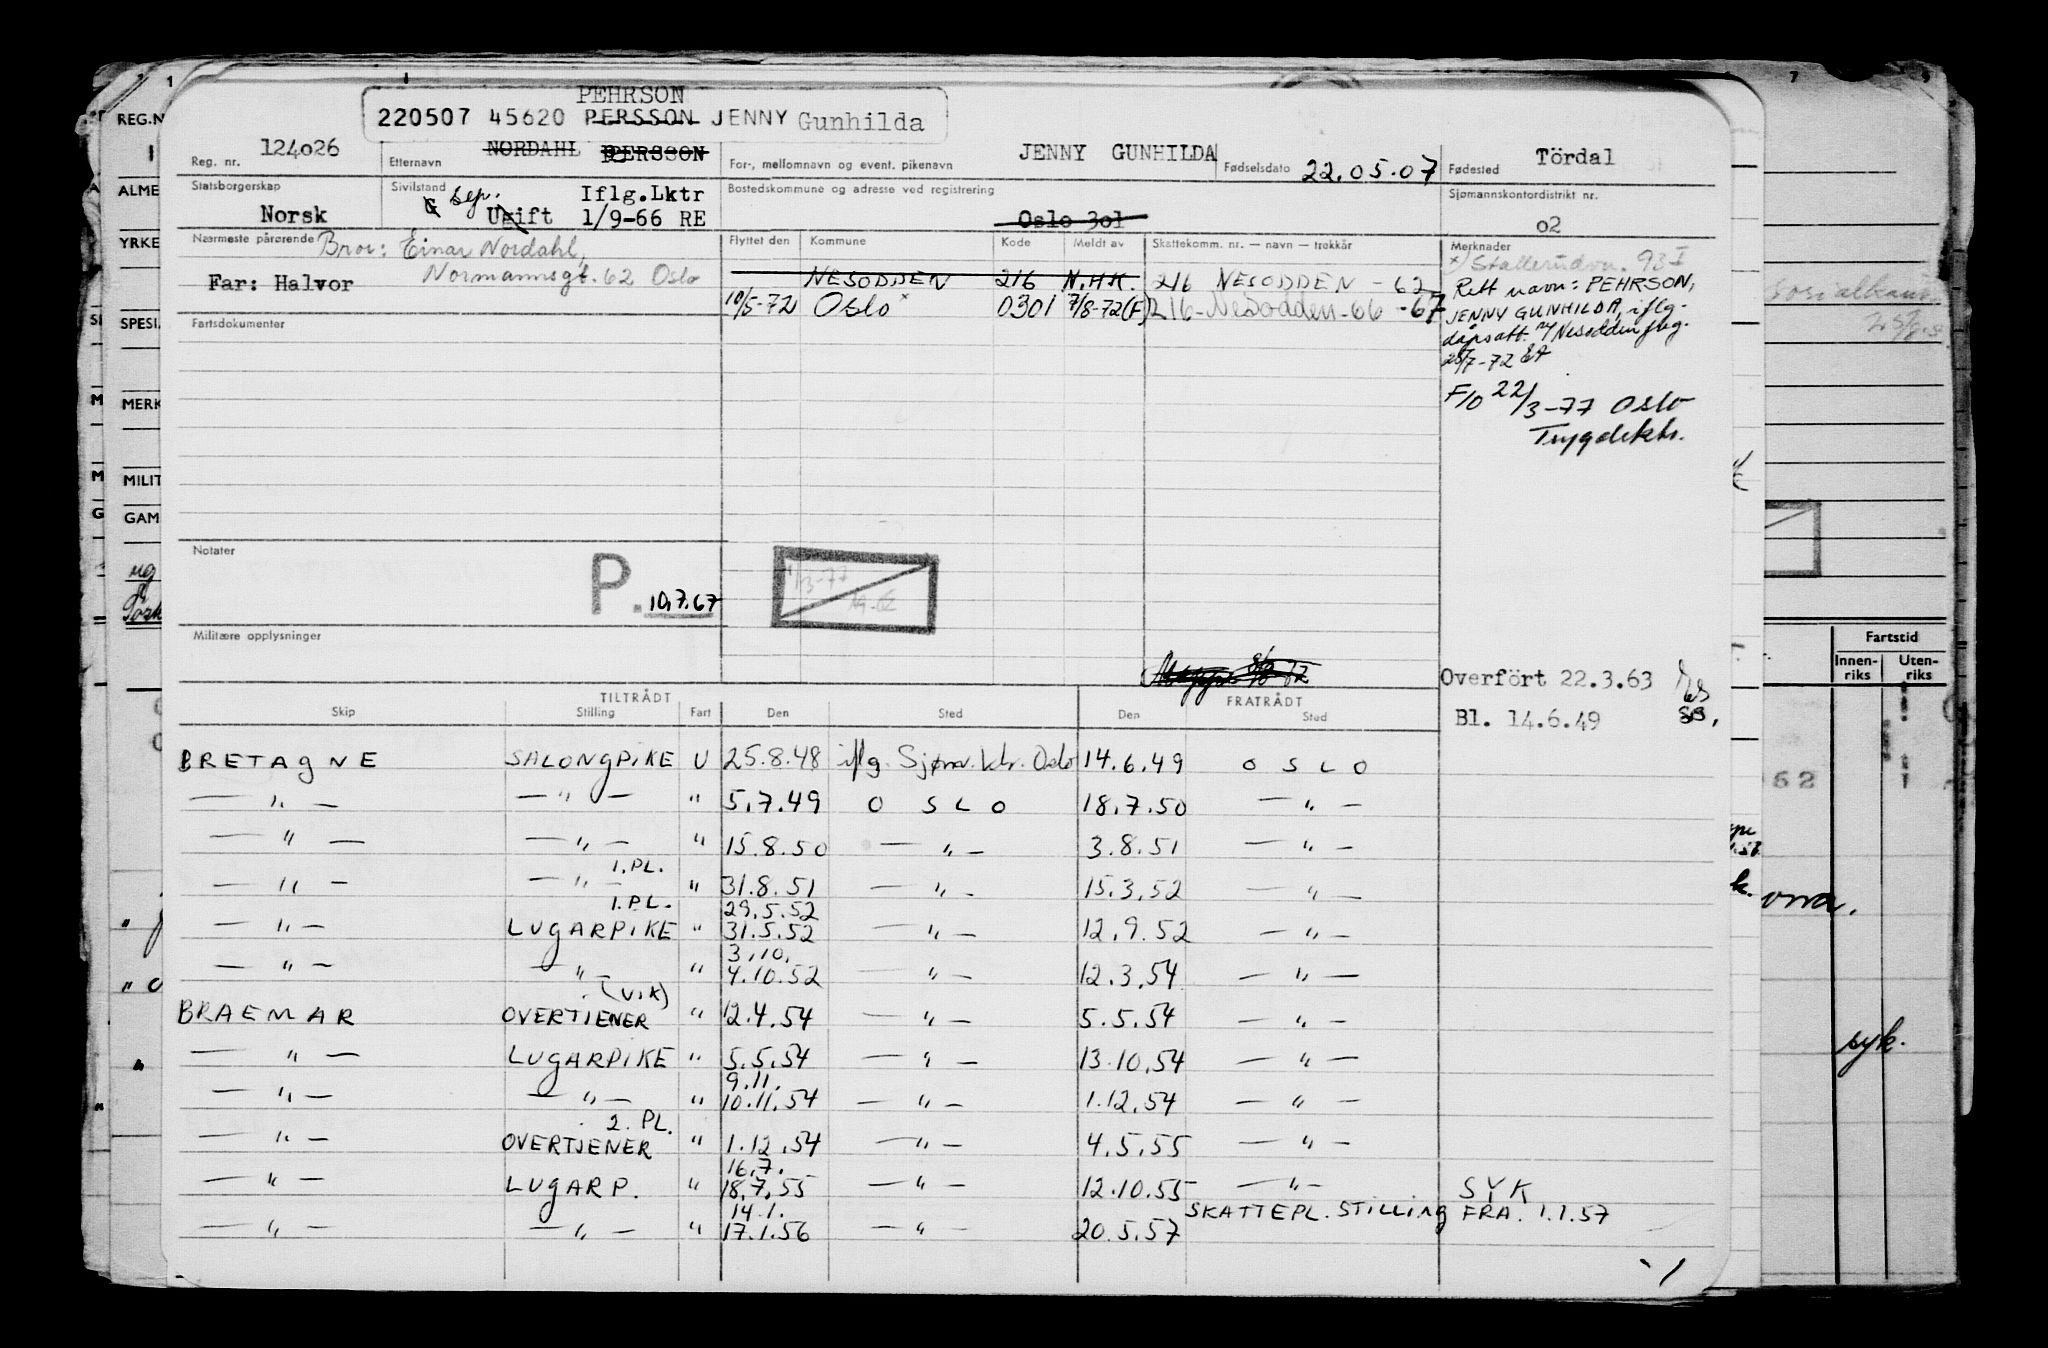 PEHRSON
220507 45620 PERSSON JENNY Gunhilda
Reg. nr. 124026 Etternavn NORDAHL PERSSON For-, mellomnavn og event. pikenavn JENNY GUNHILDA Fødselsdato 22.05.07 Fødested Tördal
Statsborgerskap Sivilstand Bostedskommune og adresse ved registrering Sjømannskontordistrikt nr.
Norsk G sep. Ugift Iflg.Lktr 1/9-66 RE Oslo 301 02
Nærmeste pårørende Bror: Einar Nordahl,
Normannsgt. 62 Oslo
Far: Halvor
Flyttet den Kommune Kode Meldt av Skattekomm. nr. — navn — trekkår Merknader
NESODDEN 216 N.H.K. 216 NESODDEN - 62
10/5-72 Oslo x 0301 7/8-72(F) 216-Nesodden-66-67
x) Stallerudvn. 93 I
Rett navn: PEHRSON,
JENNY GUNHILDA, iflg.
dåpsatt. Nesodden
25/7-72
F/O 22/3-77 Oslo
Trygdektr.
Fartsdokumenter
Notater
P. 10.7.67
Militære opplysninger
Overfört 22.3.63
Bl. 14.6.49
TILTRÅDT FRATRÅDT
Skip Stilling Fart Den Sted Den Sted
BRETAGNE SALONGPIKE U 25.8.48 iflg. Sjømv.ktr. Oslo 14.6.49 OSLO
—"— —"— " 5.7.49 OSLO 18.7.50 —"—
—"— —"— " 15.8.50 —"— 3.8.51 —"—
1.PL.
—"— —"— " 31.8.51 —"— 15.3.52 —"—
1.PL. 29.5.52
—"— LUGARPIKE " 31.5.52 —"— 12.9.52 —"—
3.10.
—"— —"— " 4.10.52 —"— 12.3.54 —"—
(VIK)
BRAEMAR OVERTJENER " 12.4.54 —"— 5.5.54 —"—
—"— LUGARPIKE " 5.5.54 —"— 13.10.54 —"—
9.11.
—"— —"— " 10.11.54 —"— 1.12.54 —"—
2. PL.
—"— OVERTJENER " 1.12.54 —"— 4.5.55 —"—
16.7.
—"— LUGARP. " 18.7.55 —"— 12.10.55 —"— SYK
14.1. SKATTEPL. STILLING FRA. 1.1.57
—"— —"— " 17.1.56 —"— 20.5.57
REG.N
ALME
YRKE
SPESI
MERK
MILIT
GAM
Fartstid
Innen-
riks
Uten-
riks
syk.